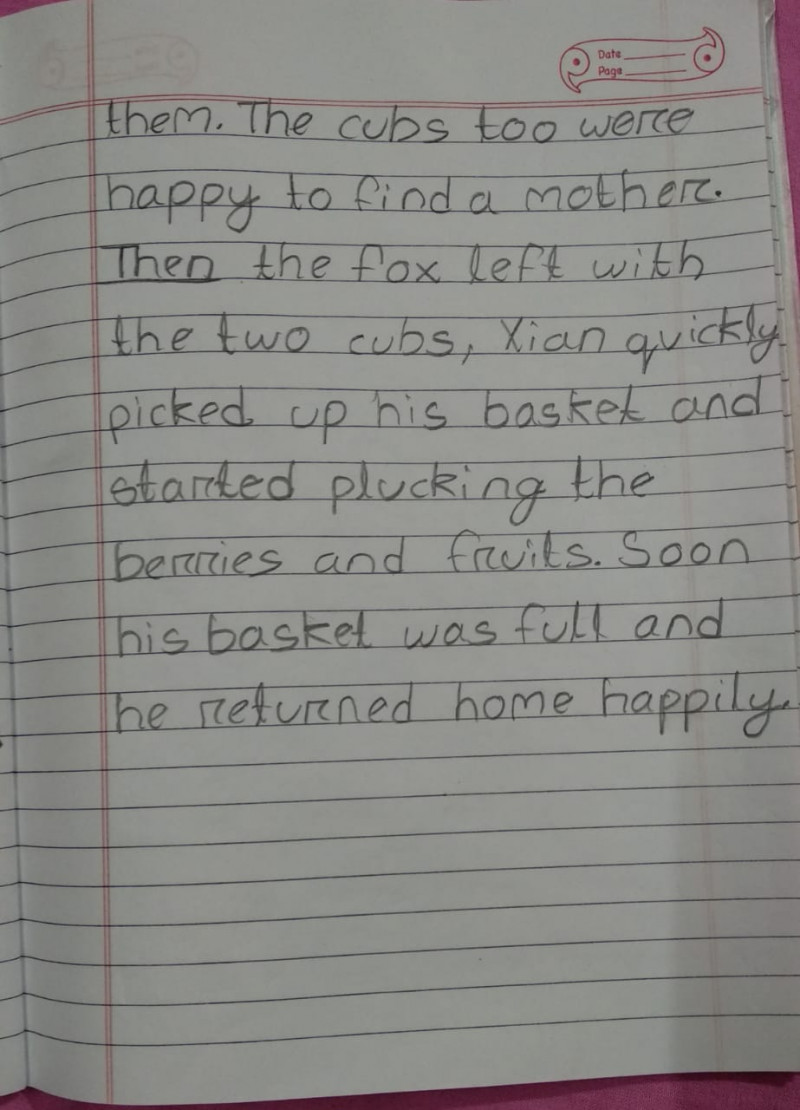 Date
Page
them. The cubs too were
happy to find a mother.
Then the fox left with
the two cubs, Xian quickly
picked up his basket and
started plucking the
berries and fruits. Soon
his basket was full and
he returned home happily.